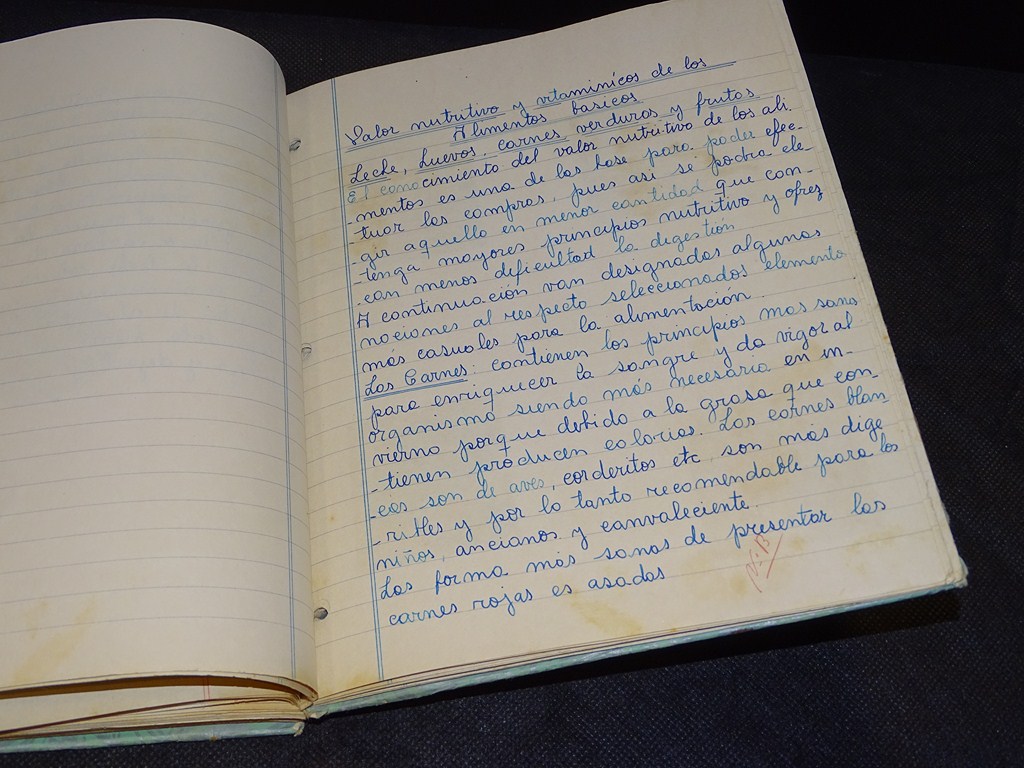 Valor nutritivo y vitaminicos de los
Alimentos basicos
Leche, huevos, carnes, verduras y frutas
El conocimiento del valor nutritivo de los ali-
-mentos es una de las base para poder efec-
-tuar las compras, pues asi se podra ele-
-gir aquello en menor cantidad que con-
-tenga mayores principios nutritivo y ofrez
-can menos dificultad la digestión
A continuación van designados algunas
nociones al respecto seleccionados elemento
más casuales para la alimentación.
Las Carnes: contienen los principios mas sanos
para enriquecer la sangre y da vigor al
organismo siendo más necesaria en in-
vierno porque debido a la grasa que con-
-tienen producen calorias. Las carnes blan
-cas son de aves, corderitos etc son más dige
-ribles y por lo tanto recomendable para los
niños, ancianos y canvaleciente.
Las forma más sanas de presentar las
carnes rojas es asadas
V.B